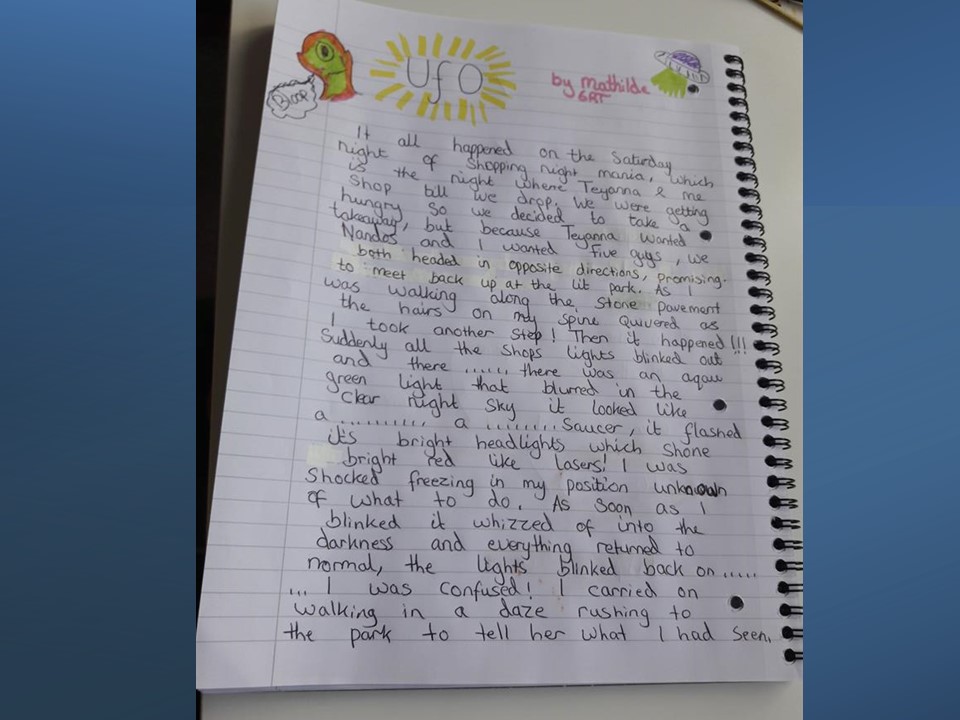 UFO
by Mathilde
6RT
BLOOP
It all happened on the Saturday
night of shopping night mania, which
is the night where Teyanna & me
shop till we drop. We were getting
hungry so we decided to take a
takeaway, but because Teyanna wanted
Nandos and I wanted Five guys, we
both headed in opposite directions, promising
to meet back up at the lit park. As I
was walking along the stone pavement
the hairs on my spine quivered as
I took another step! Then it happened!!!
Suddenly all the shops lights blinked out
and there ...... there was an aqau
green light that blurred in the
clear night sky it looked like
a .......... a ........ saucer, it flashed
it's bright headlights which shone
bright red like lasers! I was
shocked freezing in my position unknown
of what to do. As soon as I
blinked it whizzed of into the
darkness and everything returned to
normal, the lights blinked back on .....
... I was confused! I carried on
walking in a daze rushing to
the park to tell her what I had seen.